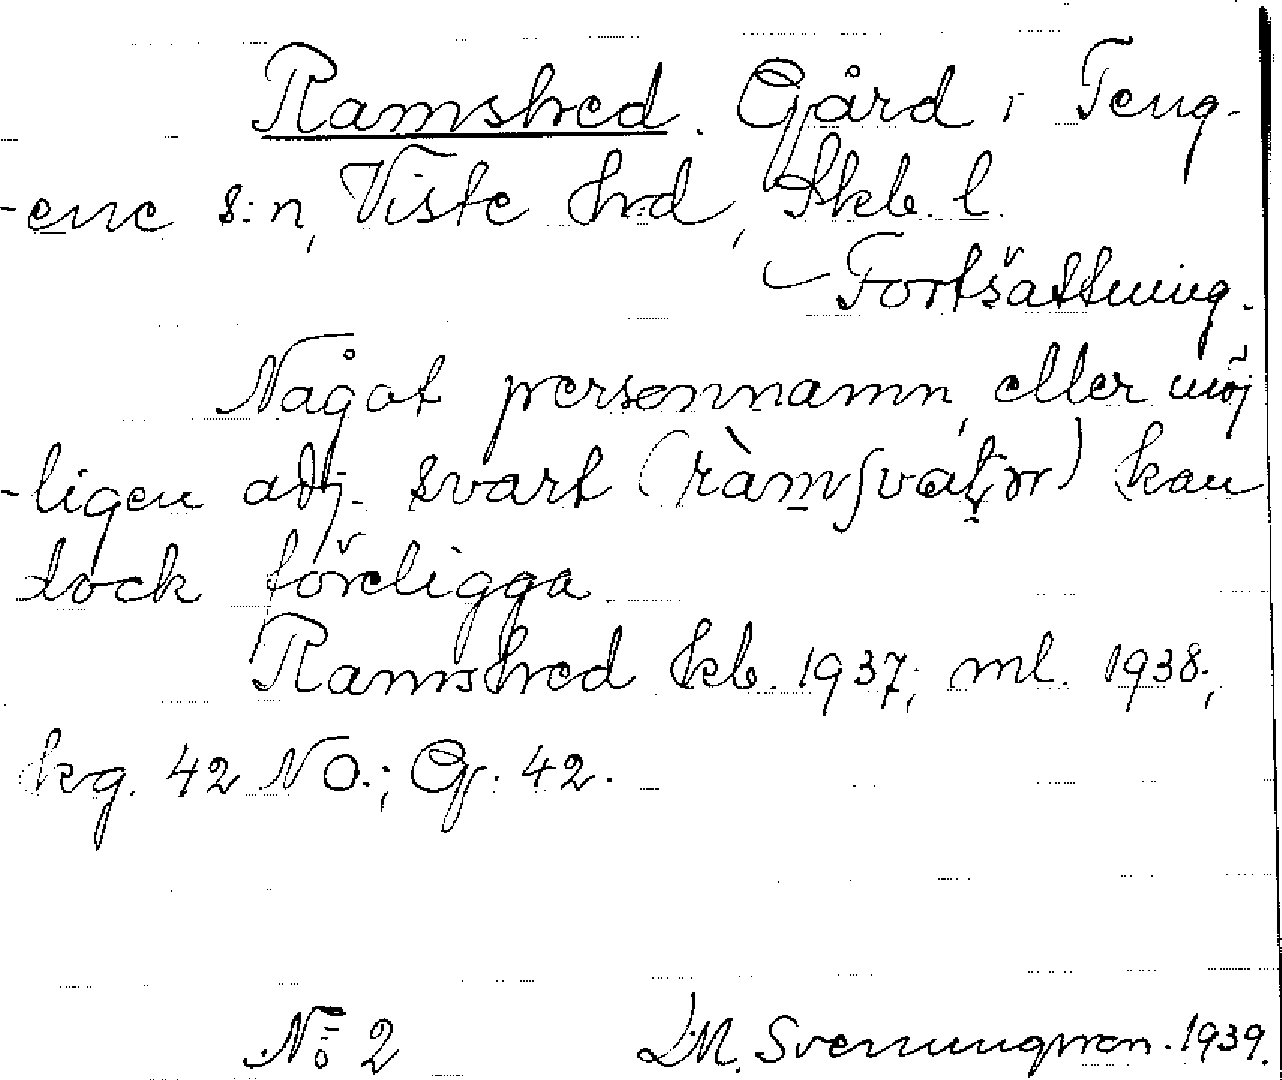 Ramshed. Gård i Teng-
-ene s:n, Viste hrd, Skb. l.
Fortsättning.
Något personnamn, eller möj
-ligen adj. svart (ràmʃvaʈɚ) kan
dock föreligga
Ramshed kb. 1937; ml. 1938;
kg. 42 NO.; G. 42.
No 2 D.M. Svenungsson. 1939.